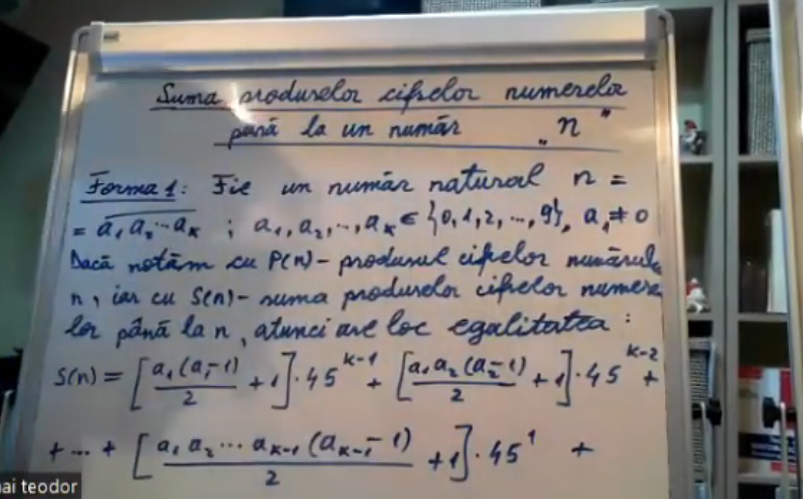 Suma produselor cifrelor numerelor
până la un număr „n"
Forma 1: Fie un număr natural n =
= a₁a₂…aₖ ; a₁, a₂, …, aₖ ∈ {0, 1, 2, …, 9}, a₁ ≠ 0
Dacă notăm cu P(n) – produsul cifrelor numărului
n, iar cu S(n) – suma produselor cifrelor numere
lor până la n, atunci are loc egalitatea :
S(n) = [a₁(a₁-1)/2 + 1]·45^(k-1) + [a₁a₂(a₂-1)/2 + 1]·45^(k-2) +
+ … + [a₁a₂…aₖ₋₁(aₖ₋₁-1)/2 + 1]·45¹ +
ai teodor